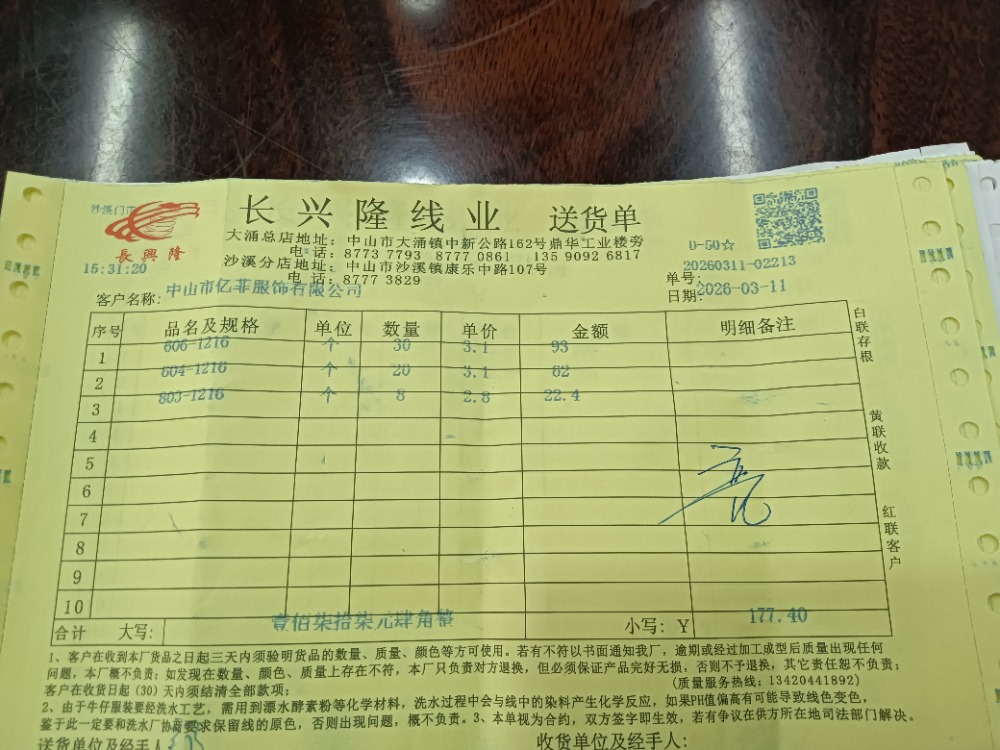 沙溪门市
長興隆
15:31:20
长兴隆线业 送货单
大涌总店地址: 中山市大涌镇中新公路162号鼎华工业楼旁
电话: 8773 7793 8777 0861 135 9092 6817
沙溪分店地址: 中山市沙溪镇康乐中路107号
电话: 8777 3829
D-50☆
单号: 20260311-02213
日期: 2026-03-11
客户名称: 中山市亿菲服饰有限公司
序号 品名及规格 单位 数量 单价 金额 明细备注
1 606-1216 个 30 3.1 93
2 604-1216 个 20 3.1 62
3 803-1216 个 8 2.8 22.4
4
5
6
7
8
9
10
合计 大写: 壹佰柒拾柒元肆角整 小写: Y 177.40
白联存根
黄联收款
红联客户
1、客户在收到本厂货品之日起三天内须验明货品的数量、质量、颜色等方可使用。若有不符以书面通知我厂，逾期或经过加工成型后质量出现任何
问题，本厂概不负责；如发现在数量、颜色、质量上存在不符，本厂只负责对方退换，但必须保证产品完好无损，否则不予退换，其它责任恕不负责；
客户在收货日起（30）天内须结清全部款项；
(质量服务热线: 13420441892)
2、由于牛仔服装要经洗水工艺，需用到漂水酵素粉等化学材料，洗水过程中会与线中的染料产生化学反应，如果PH值偏高有可能导致线色变色，
鉴于此一定要和洗水厂协商要求保留线的原色，否则出现问题，概不负责。3、本单视为合约，双方签字即生效，若有争议在供方所在地司法部门解决。
送货单位及经手人 收货单位及经手人: